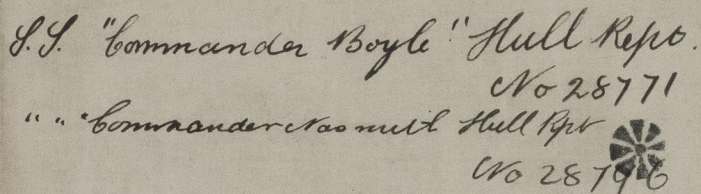 S.S. "Commander Boyle" Hull Rept.
No 28771
" " "Commander Nasmith Hull Rpt
No 28796